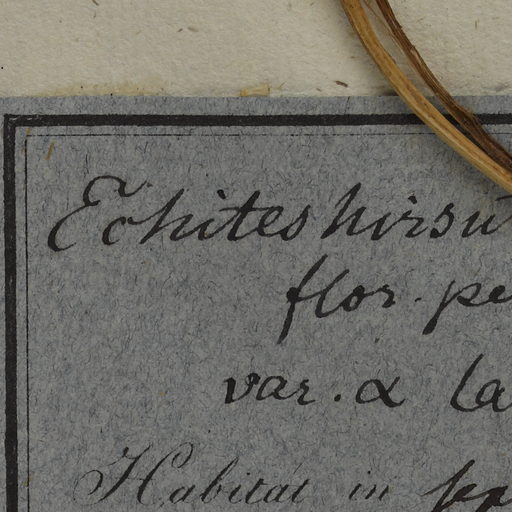 Echites hirsu
flor. pe
var. α la
Habitat in sep